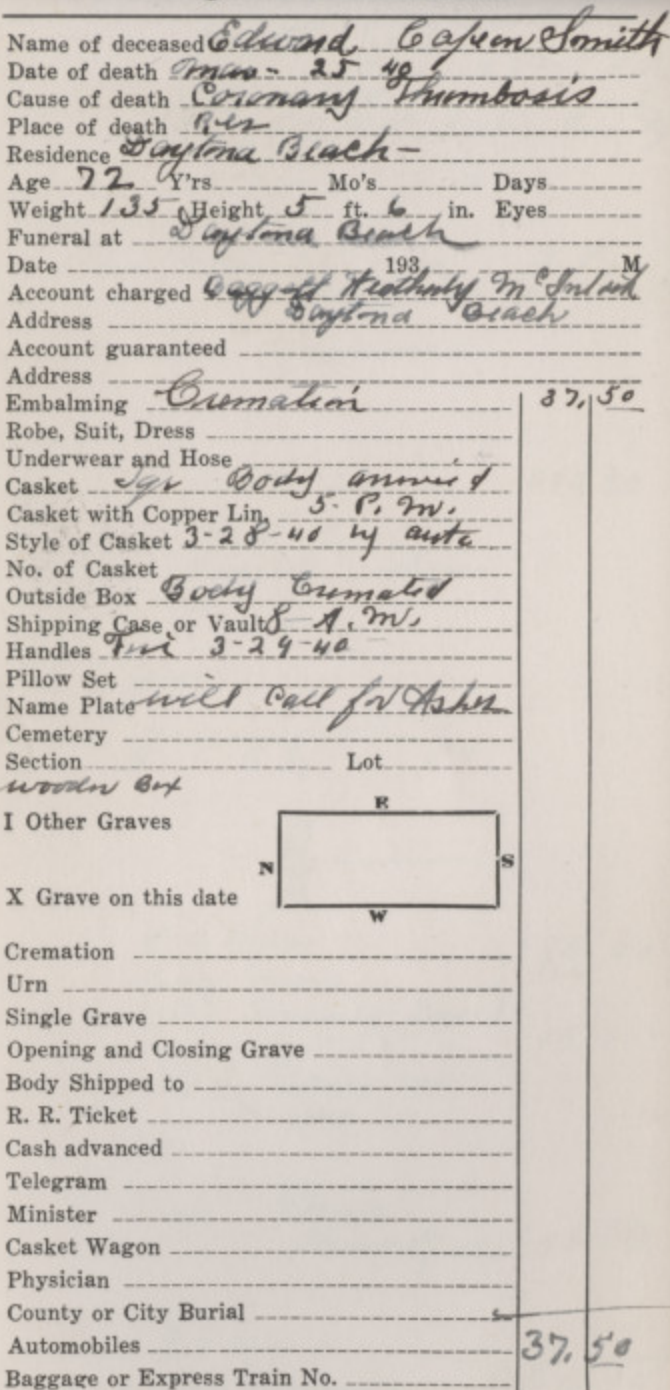 Name of deceased Edward Capen Smith
Date of death Mar - 25 40
Cause of death Coronary Thrumbosis
Place of death Res
Residence Daytona Beach -
Age 72 Y'rs Mo's Days
Weight 135 Height 5 ft. 6 in. Eyes
Funeral at Daytona Beach
Date 193 M
Account charged Baggett Wetherby McIntosh
Address Daytona Beach
Account guaranteed
Address
Embalming Cremation 37. 50
Robe, Suit, Dress
Underwear and Hose
Casket Body arrived
Casket with Copper Lin. 5- P. M.
Style of Casket 3-28-40 by auto
No. of Casket
Outside Box Body Cremated
Shipping Case or Vault 8 A. M.
Handles Fri 3-29-40
Pillow Set
Name Plate will call for Ashes
Cemetery
Section Lot
wooden Box
E
I Other Graves
N S
X Grave on this date
W
Cremation
Urn
Single Grave
Opening and Closing Grave
Body Shipped to
R. R. Ticket
Cash advanced
Telegram
Minister
Casket Wagon
Physician
County or City Burial
Automobiles 37. 50
Baggage or Express Train No.